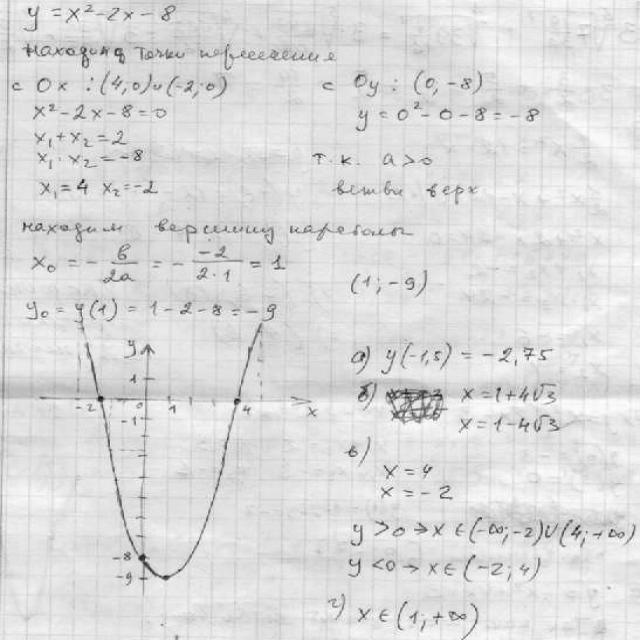 y = x² - 2x - 8
находим точки пересечения
с Ox : (4,0) и (-2,0)
x² - 2x - 8 = 0
x₁ + x₂ = 2
x₁ · x₂ = -8
x₁ = 4 x₂ = -2
с Oy : (0, -8)
y = 0² - 0 - 8 = -8
т.к. a > 0
ветви верх
находим вершину параболы
x₀ = - в/2a = - -2/2·1 = 1
(1; -9)
y₀ = y(1) = 1 - 2 - 8 = -9
y
1
-2 0 1 4 x
-1
-8
-9
а) y(-1,5) = -2,75
б) x = 1+4√3
x = 1-4√3
в)
x = 4
x = -2
y > 0 → x ∈ (-∞; -2) ∪ (4; +∞)
y < 0 → x ∈ (-2; 4)
г) x ∈ (1; +∞)